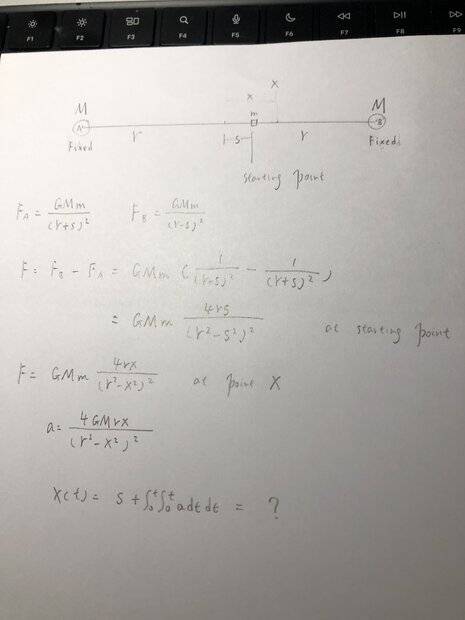 F1 F2 F3 F4 F5 F6 F7 F8 F9
x
x
M m M
A B
Fixed r s r Fixed
starting point
F_A = GMm/(r+s)² F_B = GMm/(r-s)²
F = F_B - F_A = GMm (1/(r-s)² - 1/(r+s)²)
= GMm 4rs/(r²-s²)² at starting point
F = GMm 4rx/(r²-x²)² at point X
a = 4GMrx/(r²-x²)²
X(t) = s + ∫₀ᵗ∫₀ᵗ a dt dt = ?